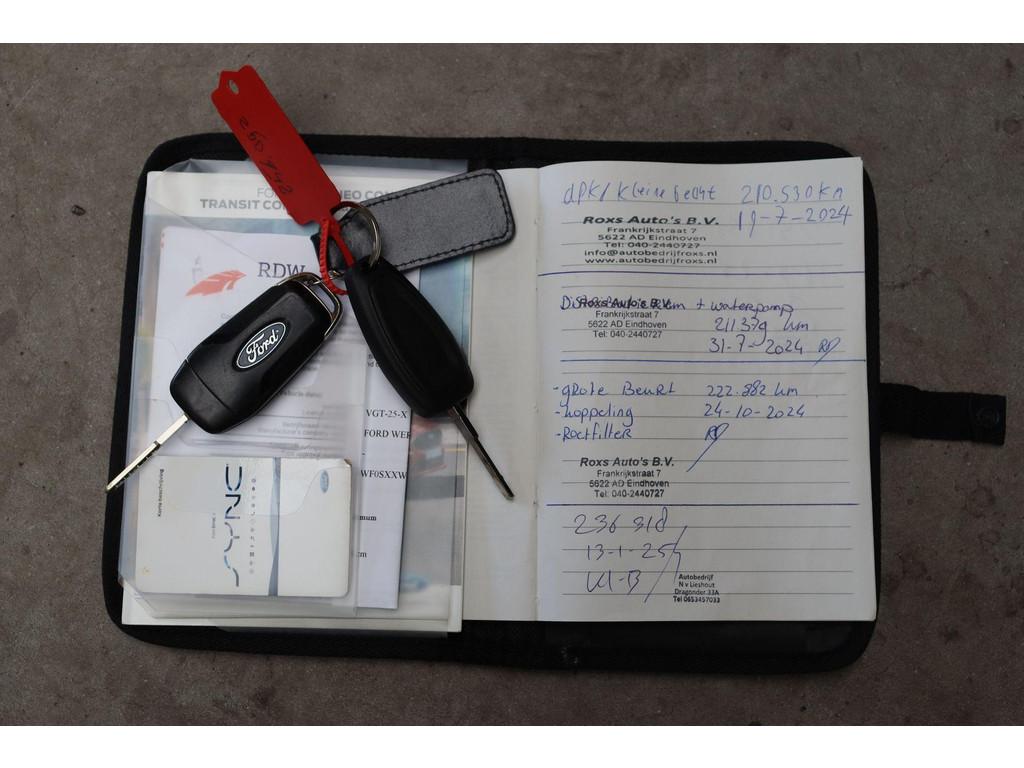 TRANSIT CO
RDW
Ford
VGT-25-X
FORD WER
WF0SXXW
mum
cm
Korte beschrijving
SYNC
dpk/ kleine beurt 210.530 km
19-7-2024
Roxs Auto's B.V.
Frankrijkstraat 7
5622 AD Eindhoven
Tel: 040-2440727
info@autobedrijfroxs.nl
www.autobedrijfroxs.nl
+ waterpomp
Roxs Auto's B.V.
Frankrijkstraat 7
5622 AD Eindhoven
Tel: 040-2440727
211.379 km
31-7-2024
-grote Beurt 222.882 km
-koppeling 24-10-2024
-Roetfilter
Roxs Auto's B.V.
Frankrijkstraat 7
5622 AD Eindhoven
Tel: 040-2440727
236 918
13-1-25
Kl-B
Autobedrijf
N v Lieshout
Dragonder 33A
Tel 0653457033